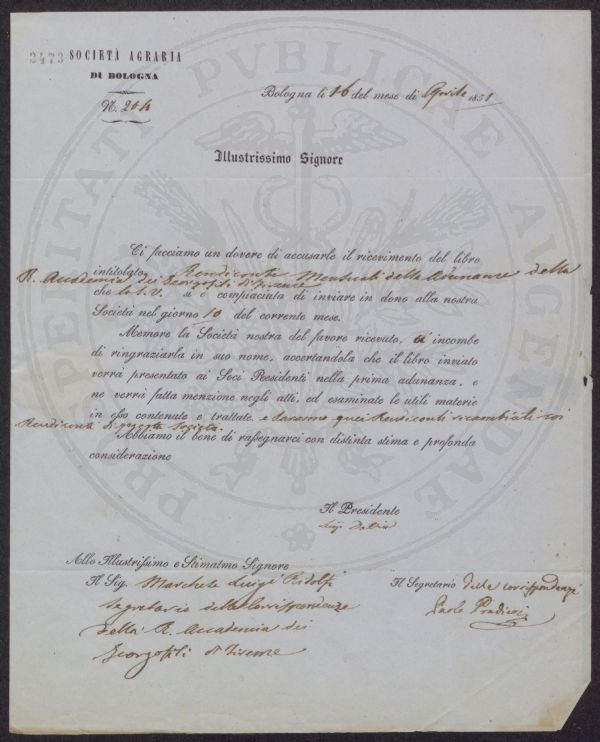 2473 SOCIETÀ AGRARIA
DI BOLOGNA
N. 204
Bologna li 16 del mese di Aprile 1851
Illustrissimo Signore
Ci facciamo un dovere di accusarle il ricevimento del libro
intitolato Rendiconti Mensuali delle Adunanze della
R. Accademia dei Georgofili di Firenze
che la S.V. si è compiaciuta di inviare in dono alla nostra
Società nel giorno 10 del corrente mese.
Memore la Società nostra del favore ricevuto, ci incombe
di ringraziarla in suo nome, accertandola che il libro inviato
verrà presentato ai Soci Residenti nella prima adunanza, e
ne verrà fatta menzione negli atti, ed esaminate le utili materie
in esso contenute e trattate. e saranno quei Rendiconti ricambiati coi
Rendiconti di questa Società.
Abbiamo il bene di rassegnarci con distinta stima e profonda
considerazione
Il Presidente
Luigi
Allo Illustrissimo e Stimatmo Signore
Il Sig. Marchese Luigi Ridolfi
Segretario delle Corrispondenze
della R. Accademia dei
Georgofili di Firenze
Il Segretario delle corrispondenze
Paolo Predieri
PROSPERITATI PVBLICAE AVGENDAE